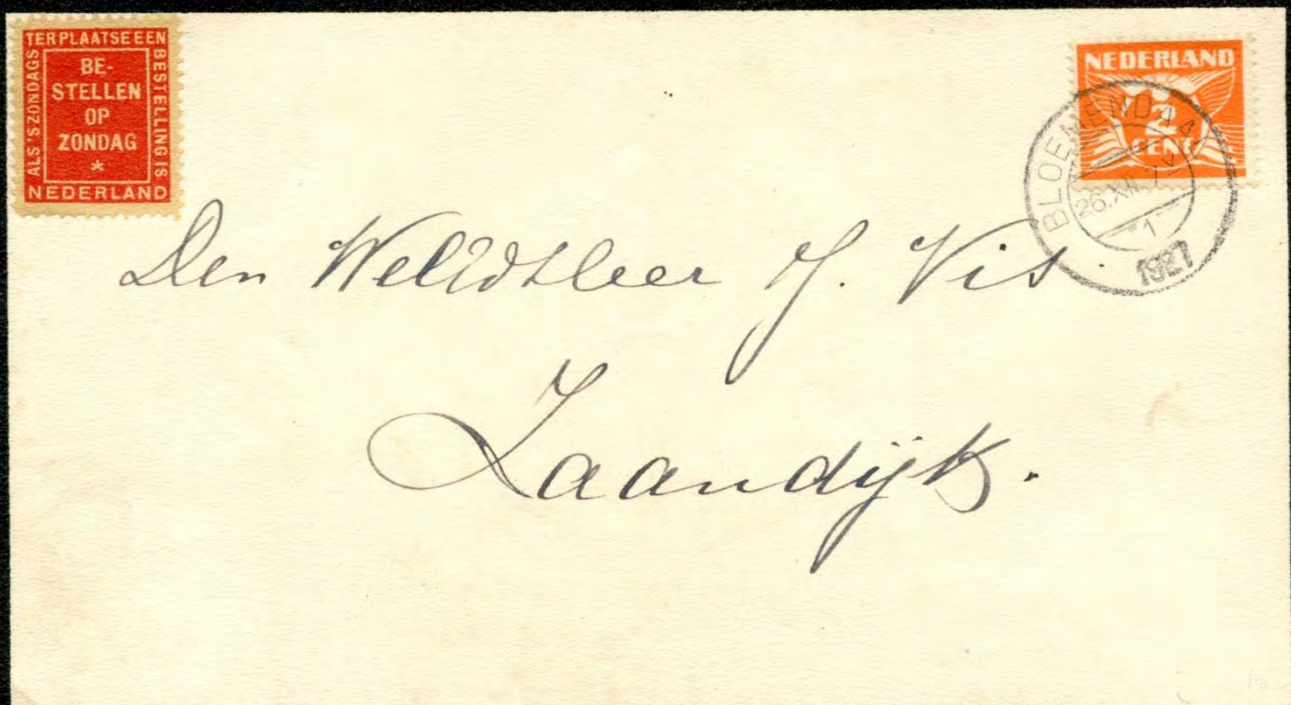 ALS 'S ZONDAGS
TER PLAATSE EEN
BESTELLING IS
BE-
STELLEN
OP
ZONDAG
*
NEDERLAND
NEDERLAND
2
CENT
BLOEMENDAAL
26.XII.
1
1927
Den WelEdHeer J. Vis.
Zaandijk.